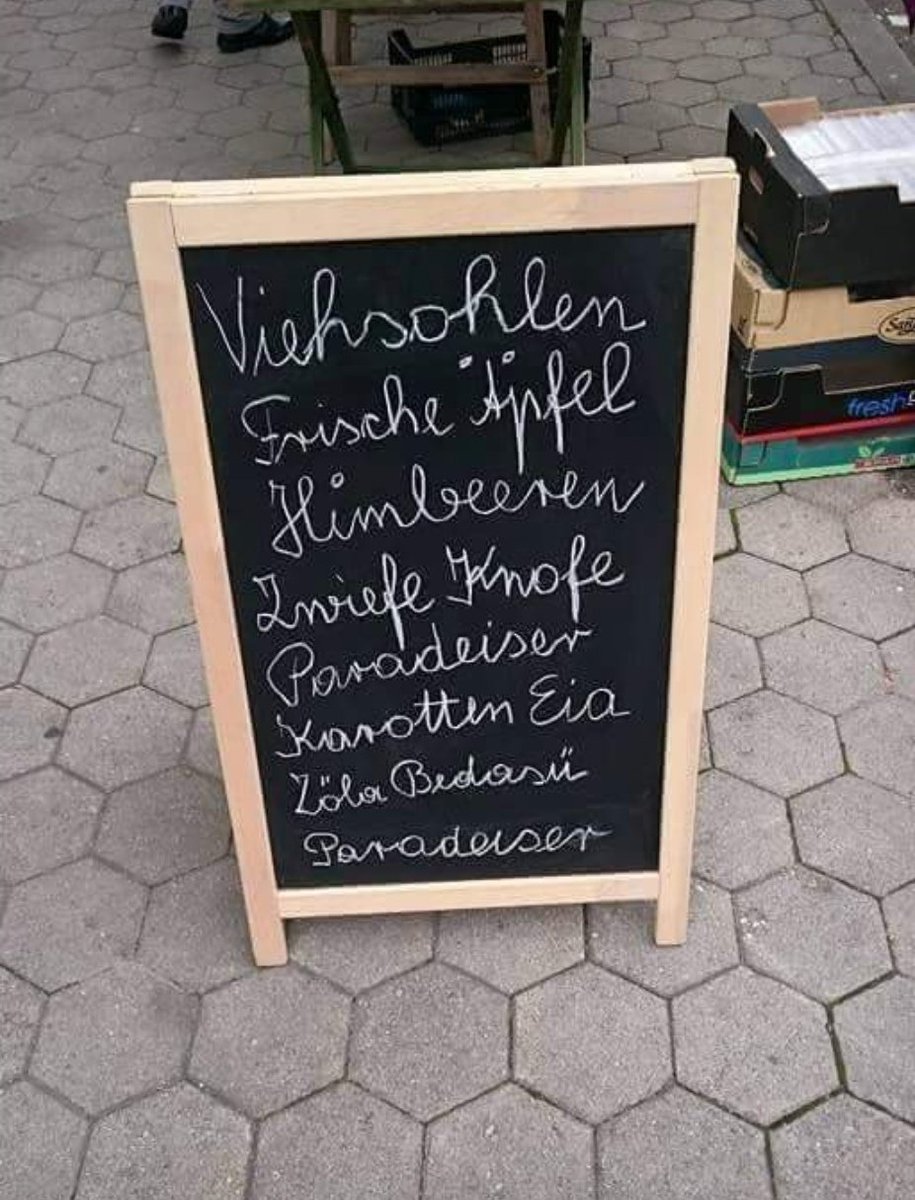 Viehsohlen
Frische Äpfel
Himbeeren
Zwiefe Knofe
Paradeiser
Karotten Eia
Zöla Bedasü
Paradeiser
fresh